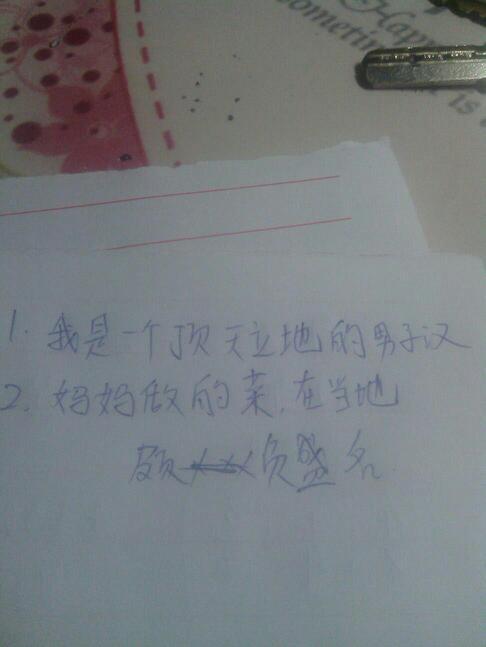 Happ
ometi
is
1. 我是一个顶天立地的男子汉
2. 妈妈做的菜，在当地
颇负盛名